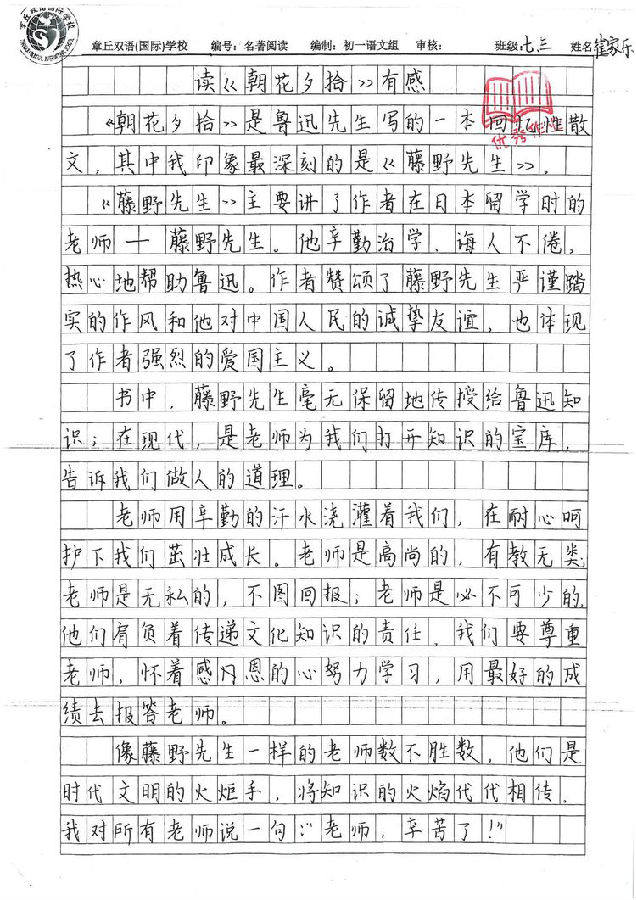 章丘双语(国际)学校 编号:名著阅读 编制:初一语文组 审核: 班级:七三 姓名:崔家乐
读《朝花夕拾》有感
优秀作业
《朝花夕拾》是鲁迅先生写的一本回忆性散
文,其中我印象最深刻的是《藤野先生》,
《藤野先生》主要讲了作者在日本留学时的
老师——藤野先生。他辛勤治学,诲人不倦,
热心地帮助鲁迅。作者赞颂了藤野先生严谨踏
实的作风和他对中国人民的诚挚友谊,也体现
了作者强烈的爱国主义。
书中,藤野先生毫无保留地传授给鲁迅知
识;在现代,是老师为我们打开知识的宝库,
告诉我们做人的道理。
老师用辛勤的汗水浇灌着我们,在耐心呵
护下我们茁壮成长。老师是高尚的,有教无类;
老师是无私的,不图回报;老师是必不可少的,
他们肩负着传递文化知识的责任,我们要尊重
老师,怀着感恩的心努力学习,用最好的成
绩去报答老师。
像藤野先生一样的老师数不胜数,他们是
时代文明的火炬手,将知识的火焰代代相传,
我对所有老师说一句:“老师,辛苦了!”